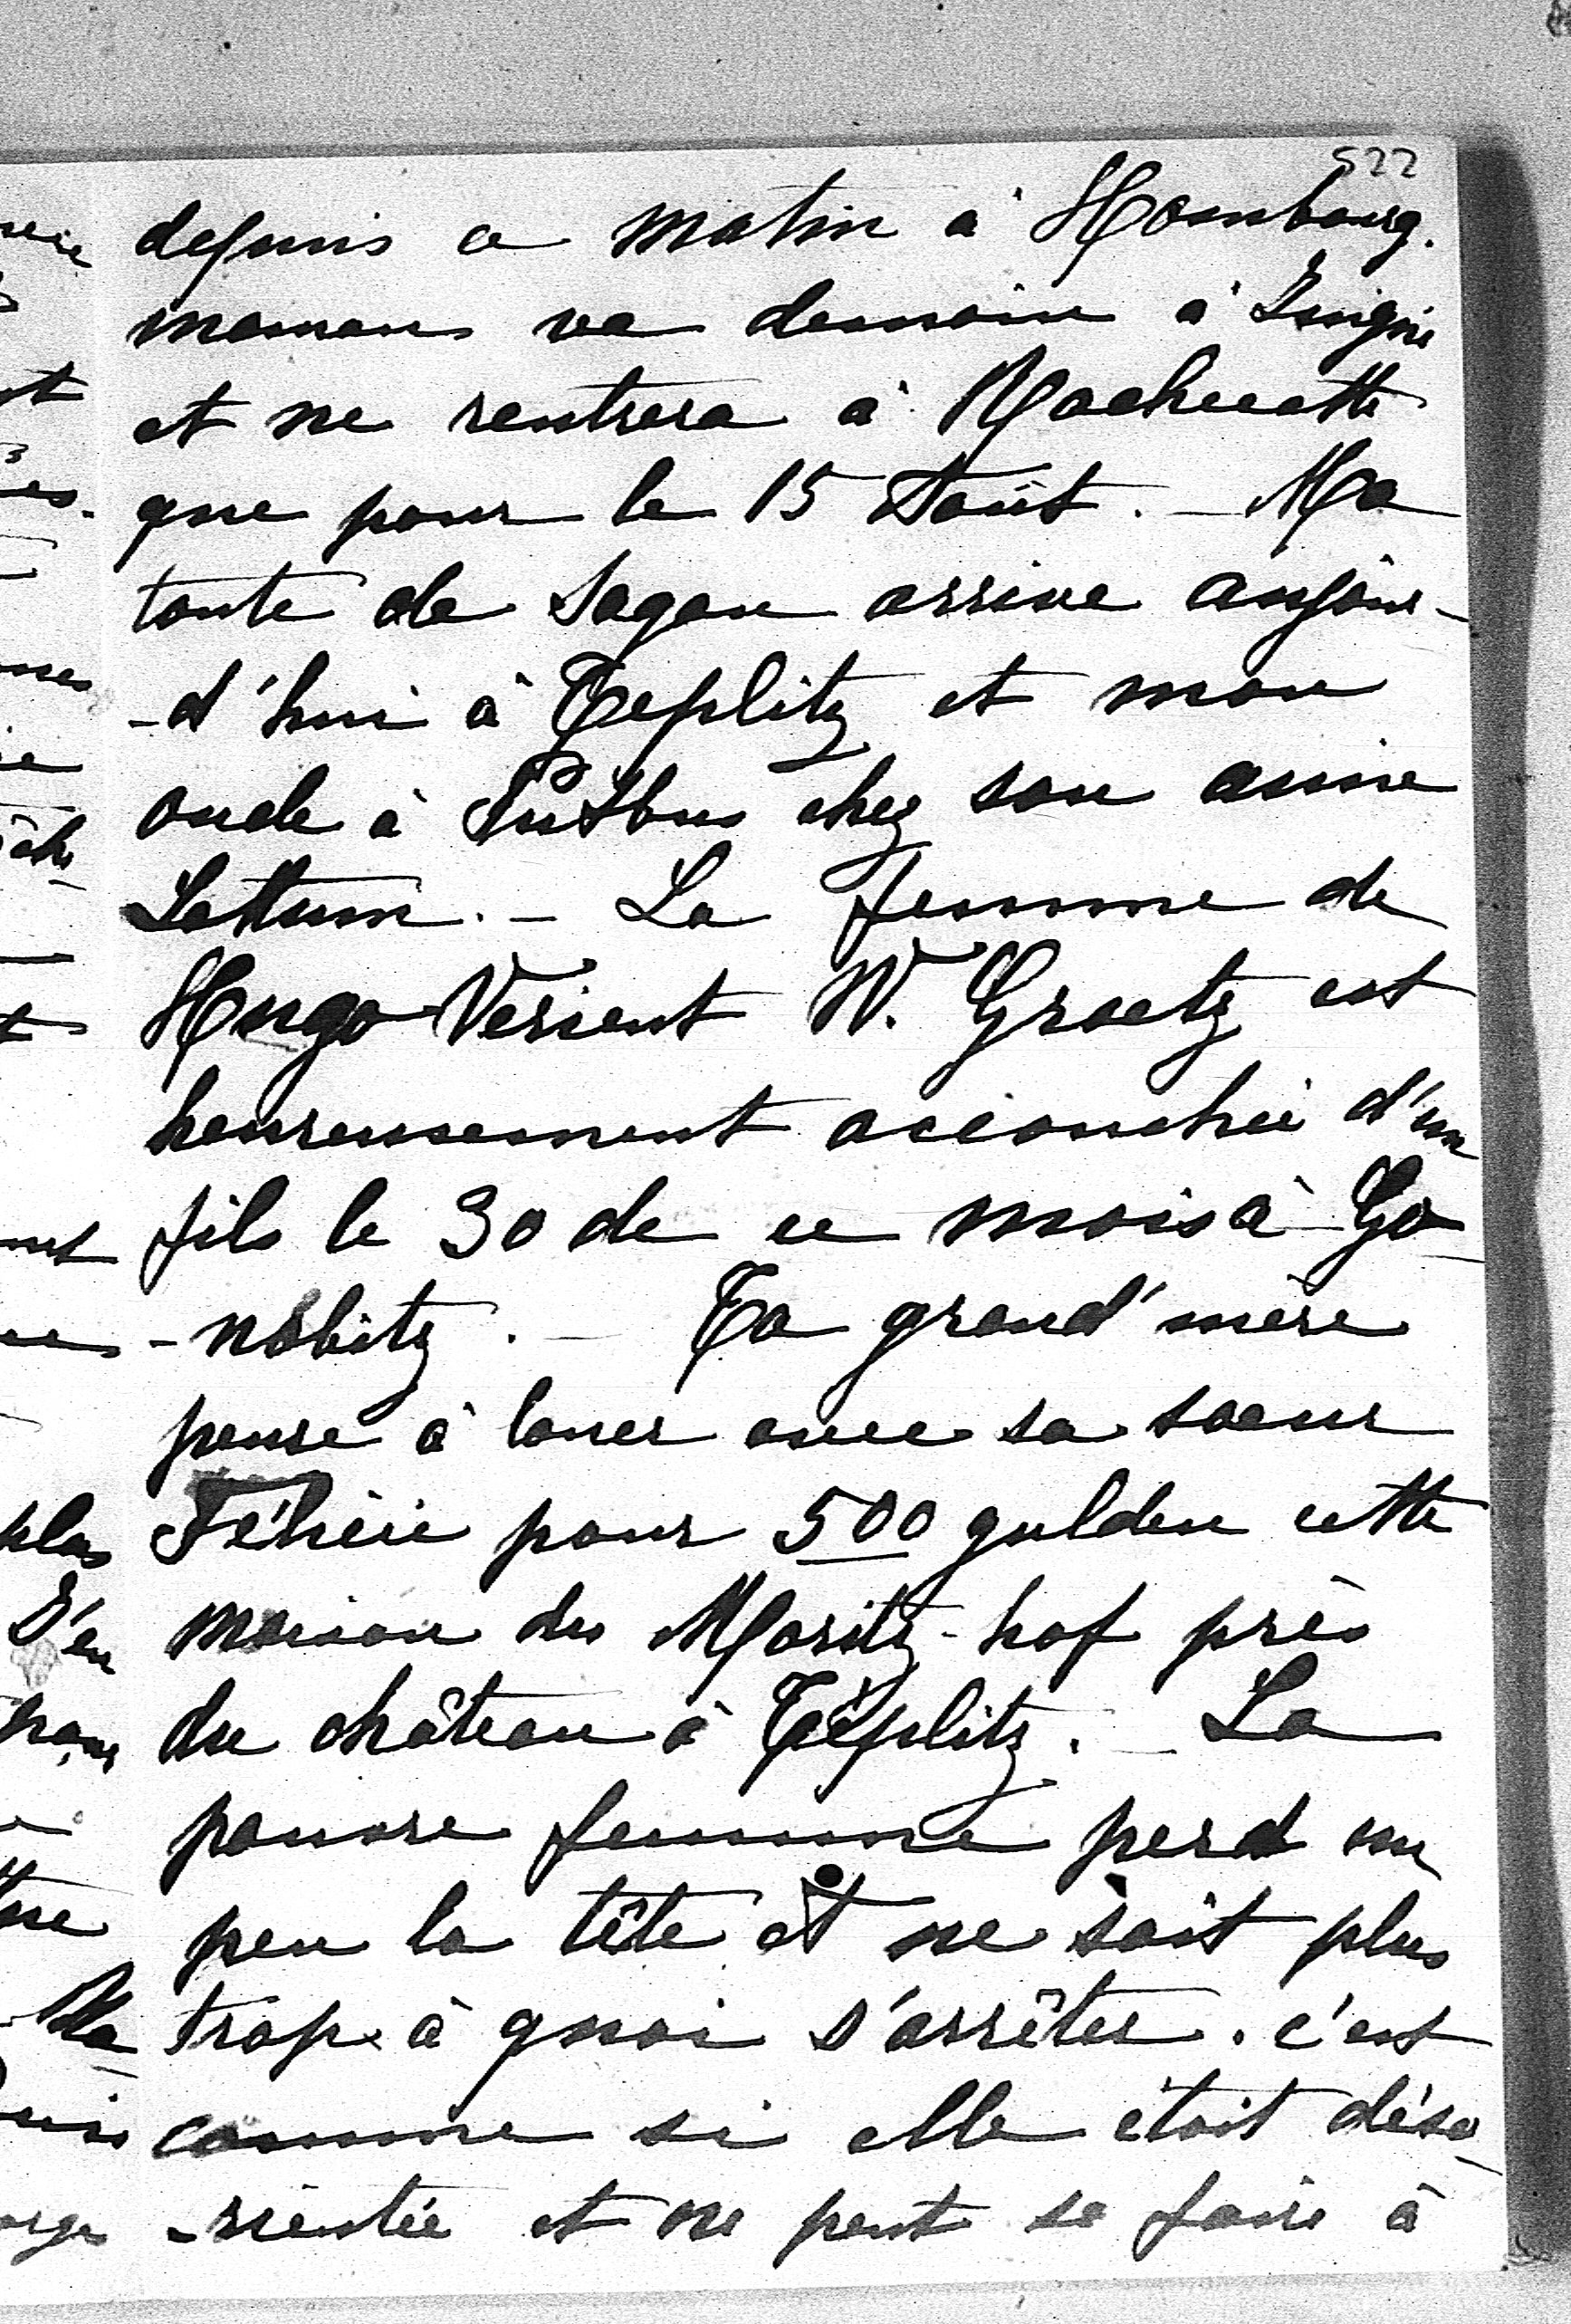 522
depuis ce matin à Hombourg.
maman va demain à
et ne rentrera à Rochecotte
que pour le 15 Août. – Ma
tante de Sagan arrive aujour-
-d'hui à Teplitz et mon
oncle à Putbus chez son amie
Lottum. – La femme de
Hugo W. Graetz est
heureusement accouchée d'un
fils le 30 de ce mois à Go
-nobitz. – Ta grand'mère
pense à louer avec sa soeur
Félicie pour 500 gulden cette
maison du Moritz-hof près
du château à Téplitz. – La
pauvre femme perd un
peu la tête et ne sait plus
trop à quoi s'arrêter. c'est
comme si elle étoit déso
-rientée et ne peut se faire à